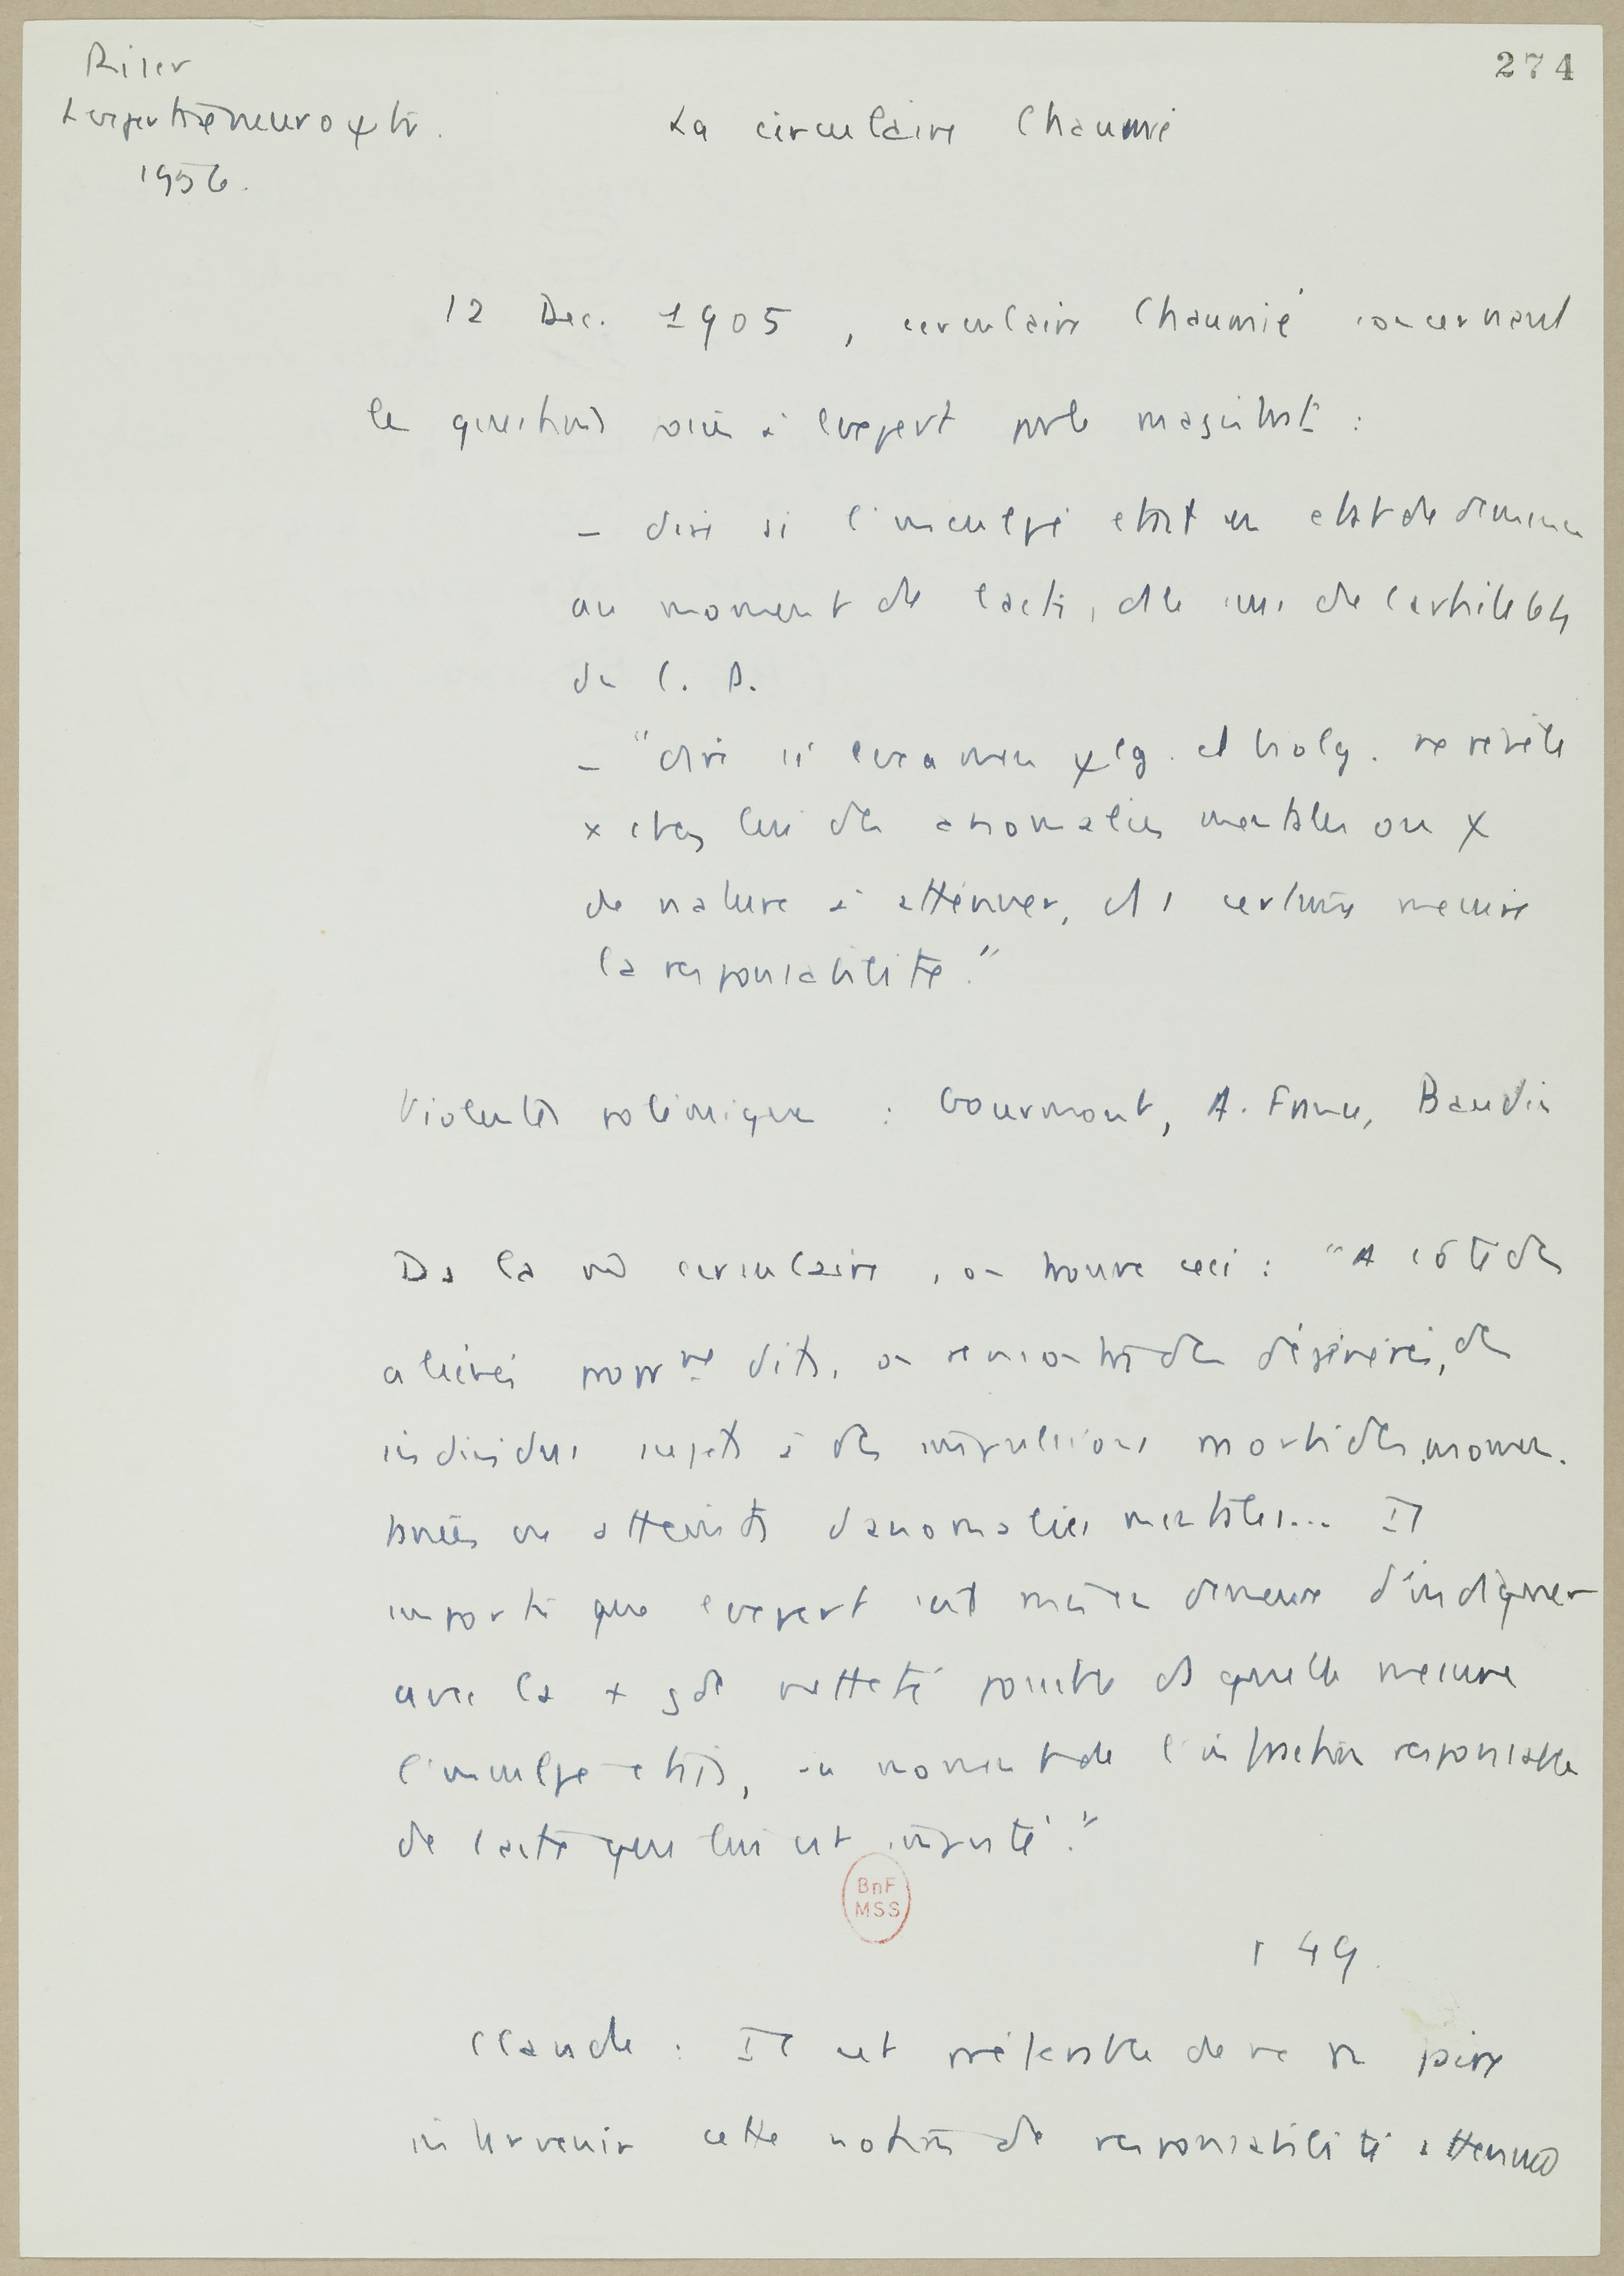 Riser
L'expertise neuro ψtr.
1956.
274
La circulaire Chaumié
12 Dec. 1905, circulaire Chaumié concernant
les questions posées à l'expert par le magistrat :
– dire si l'inculpé etait en etat de démence
au moment de l'acte, ds le sens de l'article 64
du C. P.
– "dire si l'examen ψlg. et biolg. ne révèle
chez lui des anomalies mentales ou ψ
de nature à atténuer, ds 1 certaine mesure
la responsabilité."
Violentes polémiques : Gourmont, A. France, Baudin
Ds la circulaire, on trouve ceci : "A côté des
aliénés propr.nt dits, on rencontre des dégénérés, des
individus sujets à des impulsions morbides momen-
tanées ou atteints d'anomalies mentales... Il
importe que l'expert soit mis en demeure d'indiquer
avec la + gde netteté possible ds quelle mesure
l'inculpé etait, au moment de l'infraction responsable
de l'acte qui lui est imputé."
149.
Claude : Il est préférable de ne pas faire
intervenir cette notion de responsabilité atténuée